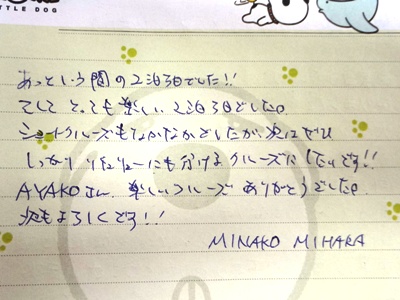 TTLE DOG
あっという間の2泊3日でした!!
そして とっても楽しい2泊3日でした。
ショートクルーズもなかなかでしたが、次はぜひ
しっかり にも分けるクルーズにしたいです!!
AYAKOさん、楽しいクルーズ ありがとうでした。
次もよろしくです!!
MINAKO MIHARA